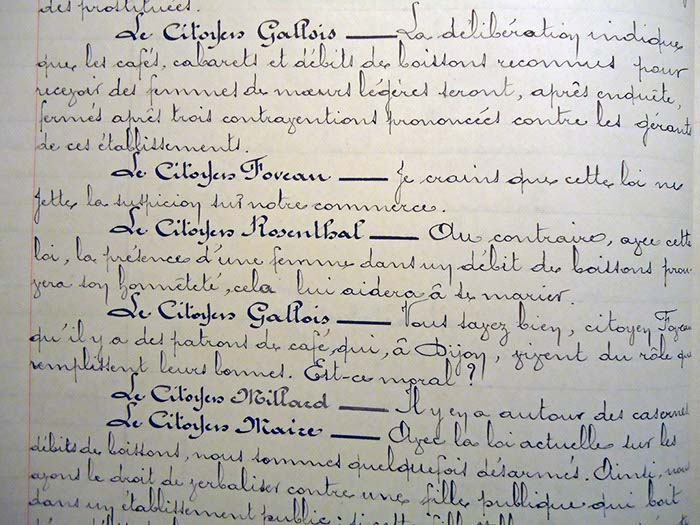 des prostituées.
Le Citoyen Gallois — La délibération indique
que les cafés, cabarets et débits de boissons reconnus pour
recevoir des femmes de mœurs légères seront, après enquête,
fermés après trois contraventions prononcées contre les gérants
de ces établissements.
Le Citoyen Foveau — Je crains que cette loi ne
jette la suspicion sur notre commerce.
Le Citoyen Rosenthal — Au contraire, avec cette
loi, la présence d'une femme dans un débit de boissons prou
vera son honnêteté, cela lui aidera à se marier.
Le Citoyen Gallois — Vous savez bien, citoyen Foveau
qu'il y a des patrons de café, qui, à Dijon, vivent du rôle que
remplissent leurs bonnes. Est-ce moral ?
Le Citoyen Millard — Il y en a autour des casernes
Le Citoyen Maire — Avec la loi actuelle sur les
débits de boissons, nous sommes quelquefois désarmés. Ainsi, nous
avons le droit de verbaliser contre une fille publique qui boit
dans un établissement public ; si cette fille